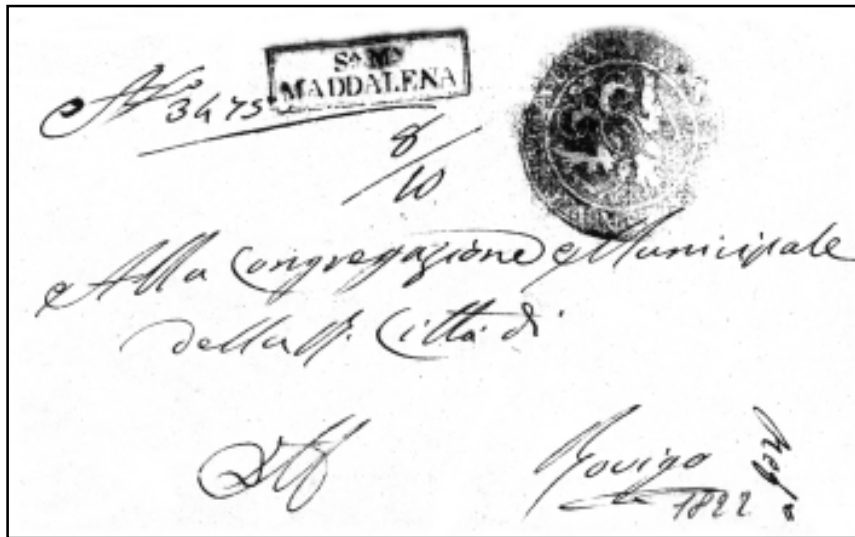 Sᵃ Mᵃ
MADDALENA
Nº 3475
8/10
Alla Congregazione Municipale
della R. Città di
Rovigo
1822